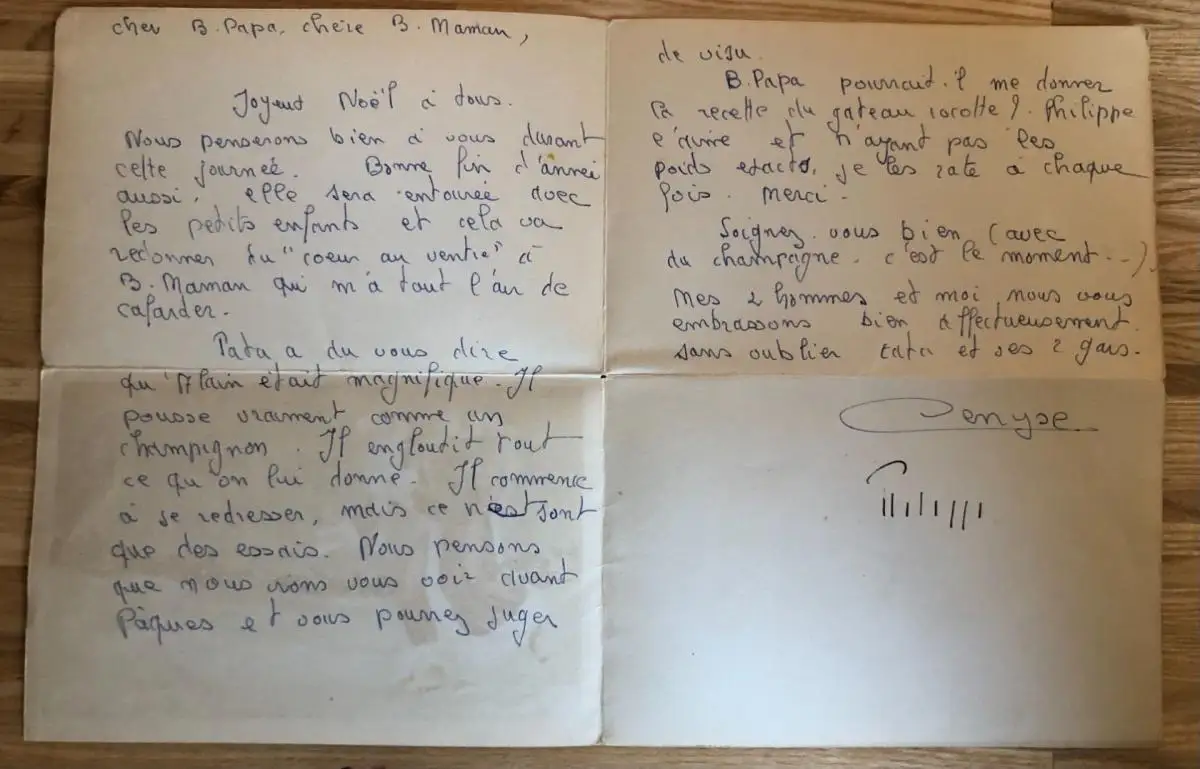 cher B. Papa, chère B. Maman,
Joyeux Noël à tous.
Nous penserons bien à vous durant
cette journée. Bonne fin d'année
aussi, elle sera entourée avec
les petits enfants et cela va
redonner du "coeur au ventre" à
B. Maman qui m'a tout l'air de
cafarder.
Tata a du vous dire
qu'Alain était magnifique. Il
pousse vraiment comme un
champignon. Il engloutit tout
ce qu'on lui donne. Il commence
à se redresser, mais ce n'est sont
que des essais. Nous pensons
que nous irons vous voir avant
Pâques et vous pourrez juger
de visu.
B. Papa pourrait-il me donner
la recette du gateau cocotte ?. Philippe
l'aime et n'ayant pas les
poids exacts, je les rate à chaque
fois. Merci.
Soignez-vous bien (avec
du champagne. c'est le moment...).
Mes 2 hommes et moi, nous vous
embrassons bien affectueusement.
sans oublier tata et ses 2 gars.
Denyse